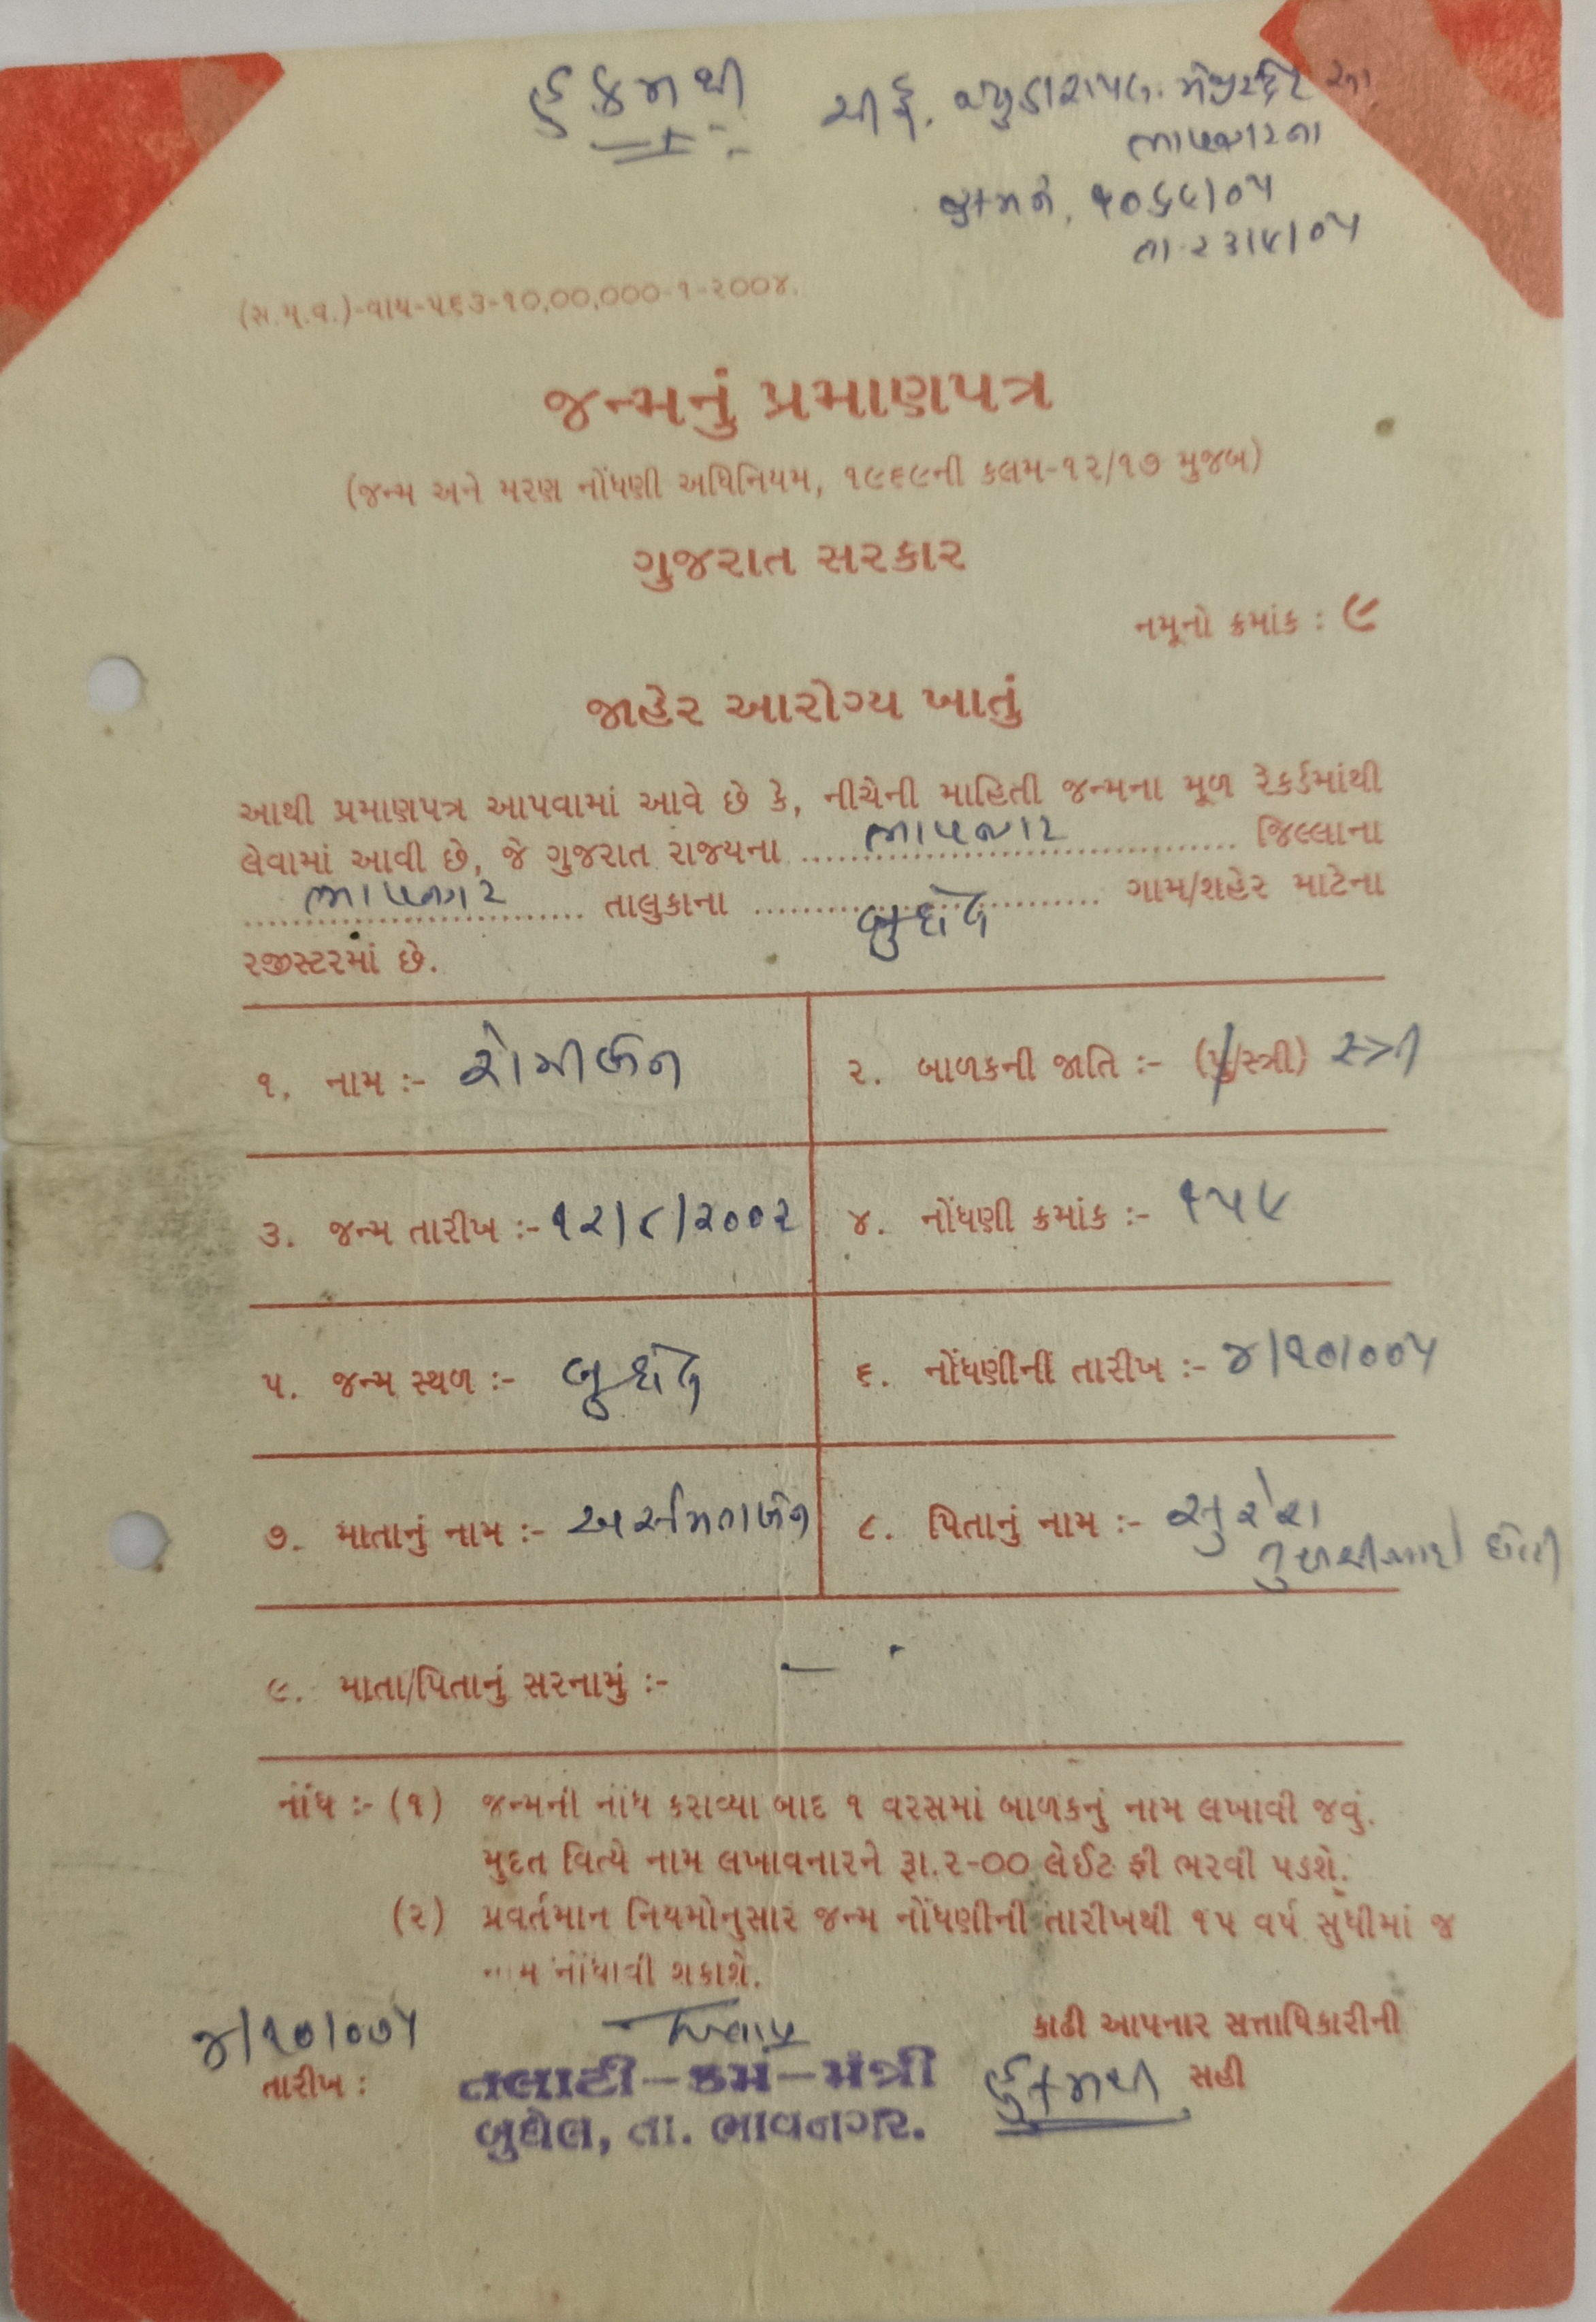 હુકમથી
ચીફ. જ્યુડીશીયલ. મેજીસ્ટ્રેટ
ભાવનગરના
હુકમને,
(સ.મુ.વ.)-વાય-૫૬૩-૧૦,૦૦,૦૦૦-૧-૨૦૦૪.
જન્મનું પ્રમાણપત્ર
(જન્મ અને મરણ નોંધણી અધિનિયમ, ૧૯૬૯ની કલમ-૧૨/૧૭ મુજબ)
ગુજરાત સરકાર
નમૂનો ક્રમાંક : ૯
જાહેર આરોગ્ય ખાતું
આથી પ્રમાણપત્ર આપવામાં આવે છે કે, નીચેની માહિતી જન્મના મૂળ રેકર્ડમાંથી
લેવામાં આવી છે, જે ગુજરાત રાજયના ભાવનગર જિલ્લાના
ભાવનગર તાલુકાના બુધેલ ગામ/શહેર માટેના
રજીસ્ટરમાં છે.
૧. નામ :-
૨. બાળકની જાતિ :- (પુ/સ્ત્રી) સ્ત્રી
૩. જન્મ તારીખ :- ૧૨/૮/૨૦૦૨
૪. નોંધણી ક્રમાંક :- ૧૫૯
૫. જન્મ સ્થળ :- બુધેલ
૬. નોંધણીની તારીખ :- ૪/૧૦/૦૦૫
૭. માતાનું નામ :-
૮. પિતાનું નામ :- સુરેશ
તુલશીભાઇ
૯. માતા/પિતાનું સરનામું :- -
નોંધ :- (૧) જન્મની નોંધ કરાવ્યા બાદ ૧ વરસમાં બાળકનું નામ લખાવી જવું.
મુદત વિત્યે નામ લખાવનારને રૂા.૨-૦૦ લેઈટ ફી ભરવી પડશે.
(૨) પ્રવર્તમાન નિયમોનુસાર જન્મ નોંધણીની તારીખથી ૧૫ વર્ષ સુધીમાં જ
નામ નોંધાવી શકાશે.
૪/૧૦/૦૦૫
તારીખ :
કાઢી આપનાર સત્તાધિકારીની
સહી
હુકમથી
તલાટી-કમ-મંત્રી
બુધેલ, તા. ભાવનગર.